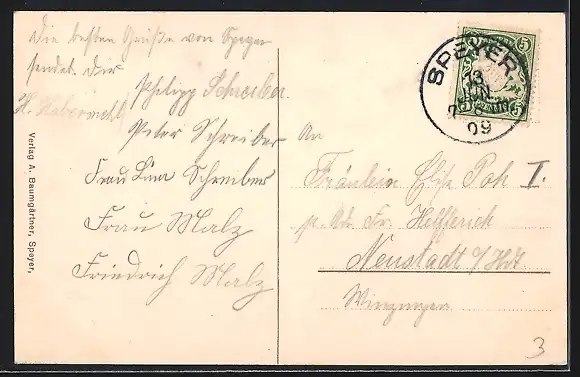 Die besten Grüße von Speyer
sendet Dir
Philipp Schreiber
H. Habermehl
Peter Schreiber
Frau Lina Schreiber
Frau Malz
Friedrich Malz
Verlag A. Baumgärtner, Speyer,
SPEYER
13 JUN
09
5
5
An
Fräulein Elise Poh I.
p. Adr. Fr. Helfferich
Neustadt a/Hdt
Winzingen
3